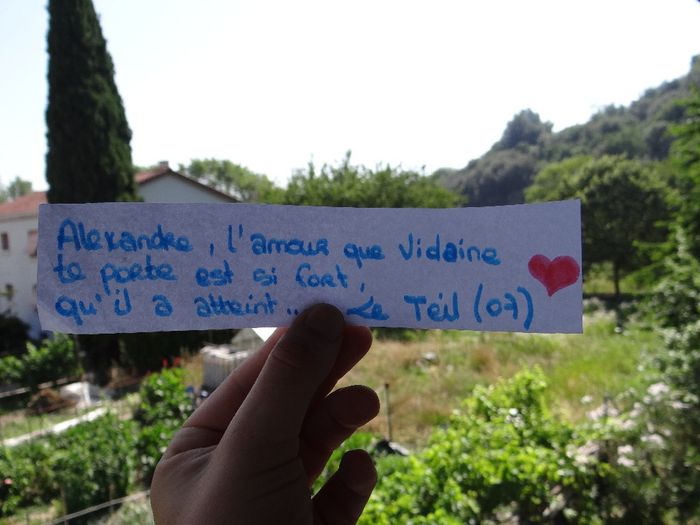 Alexandre, l'amour que Vidaine
te porte est si fort,
qu'il a atteint... Le Teil (07)